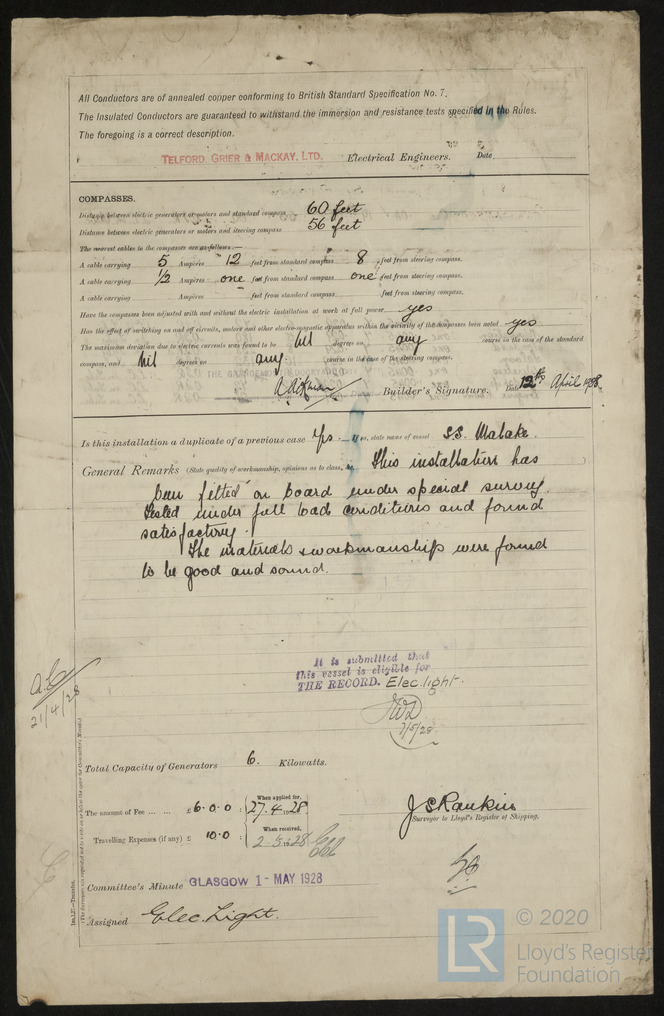 All Conductors are of annealed copper conforming to British Standard Specification No. 7.
The Insulated Conductors are guaranteed to withstand the immersion and resistance tests specified in the Rules.
The foregoing is a correct description.
TELFORD, GRIER & MACKAY, LTD. Electrical Engineers. Date
COMPASSES.
Distance between electric generators or motors and standard compass 60 feet
Distance between electric generators or motors and steering compass 56 feet
The nearest cables to the compasses are as follows:—
A cable carrying 5 Ampères 12 feet from standard compass 8 feet from steering compass.
A cable carrying 1/2 Ampères one feet from standard compass one feet from steering compass.
A cable carrying Ampères feet from standard compass feet from steering compass.
Have the compasses been adjusted with and without the electric installation at work at full power yes
Has the effect of switching on and off circuits, motors and other electro-magnetic apparatus within the vicinity of the compasses been noted yes
The maximum deviation due to electric currents was found to be nil degrees on any course in the case of the standard
compass, and nil degrees on any course in the case of the steering compass.
Builder's Signature. Date 12th April 1928
Is this installation a duplicate of a previous case Yes If so, state name of vessel S.S. Malake.
General Remarks (State quality of workmanship, opinions as to class, &c. This installation has
been fitted on board under special survey.
Tested under full load conditions and found
satisfactory.
The materials & workmanship were found
to be good and sound.
It is submitted that
this vessel is eligible for
THE RECORD. Elec. light.
7/5/28
21/4/28
Total Capacity of Generators 6. Kilowatts.
The amount of Fee ... ... £ 6.0.0 When applied for, 27.4.1928
Travelling Expenses (if any) £ 10.0 When received, 2.5.1928
J S Rankin
Surveyor to Lloyd's Register of Shipping.
Committee's Minute GLASGOW 1 - MAY 1928
Assigned Elec. Light.
LR © 2020
Lloyd's Register
Foundation